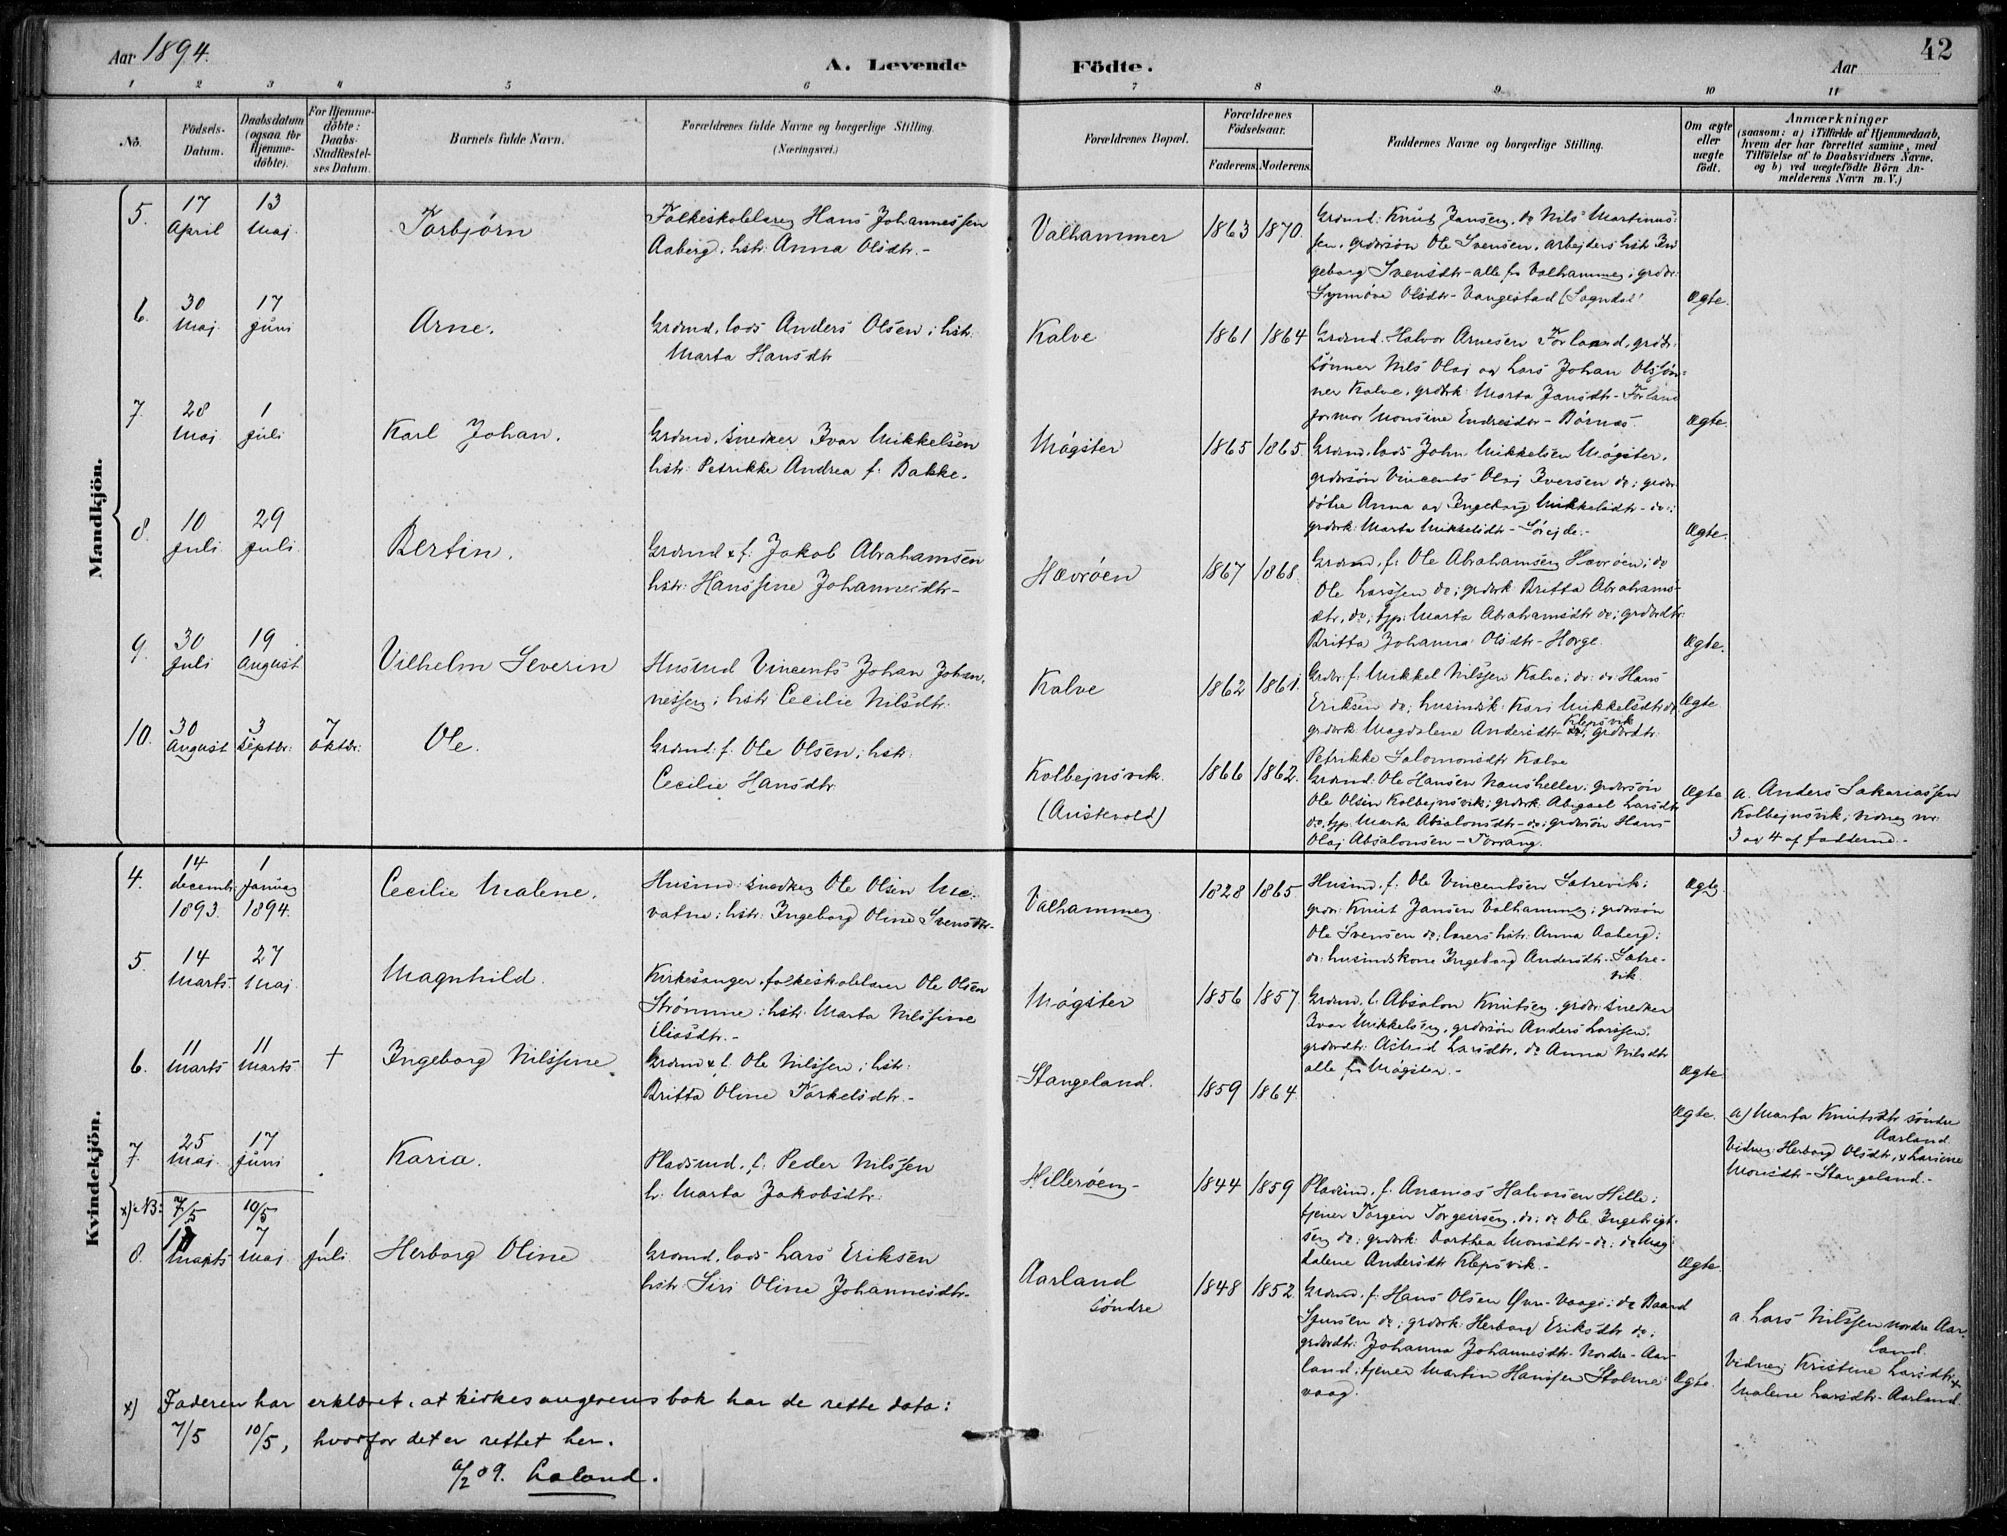 Aar 1894.
A. Levende Födte.
Aar
42
1 2 3 4 5 6 7 8 9 10 11
No.
Födsels-Datum.
Daabsdatum (ogsaa for Hjemme-döbte).
For Hjemme-döbte: Daabs-Stadfæstel-ses Datum.
Barnets fulde Navn.
Forældrenes fulde Navne og borgerlige Stilling. (Næringsvei.)
Forældrenes Bopæl.
Forældrenes Födselsaar.
Faderens. Moderens.
Faddernes Navne og borgerlige Stilling.
Om ægte eller uægte födt.
Anmærkninger
(saasom: a) i Tilfælde af Hjemmedaab,
hvem der har forrettet samme, med
Tilföielse af to Daabsvidners Navne.
og b) ved uægtefödte Börn An-
melderens Navn m. V.)
Mandkjön.
5. 17 April 13 Maj Torbjørn
Folkeskolelærer Hans Johannessen
Aaberg, hstr: Anna Olsdtr.-
Valhammer 1863 1870.
Grdmd: Knut Jansen, do Nils Martinus-
sen, grdmsøn Ole Svensen, arbejders hstr In-
geborg Svensdtr - alle fr Valhammer; grdm:
Synnøve Olsdtr - Vangestad (Sogndal)
Ægte.
6. 30 Maj. 17 Juni Arne.
Grdmd, lods Anders Olsen; hstr.
Marta Hansdtr
Kalve 1861 1864
Grdmd. Halvor Arnesen Førland, grdm.
sønner Nils Olaj og Lars Johan Olssøn-
ner Kalve, grdmk: Marta Jansdtr - Førland
jormor Monsine Endresdtr - Børnæs
Ægte.
7. 28 Maj 1 Juli Karl Johan.
Grdmd, snedker Ivar Mikkelsen
hstr: Petrikke Andrea f. Bakke.
Møgster 1865 1865.
Grdmd, lods John Mikkelsen Møgster,
grdmsøn Vincents Olaj Iversen do; grdm
døtre Anna og Ingeborg Mikkelsdtr - do;
grdmk: Marta Mikkelsdtr - Sørejde.-
Ægte.
8. 10 Juli 29 Juli. Bertin.
Grdmd & f: Jakob Abrahamsen
hstr: Hanssine Johannesdtr -
Hævrøen 1867 1868.
Grdmd, f: Ole Abrahamsen Hævrøen; do
Ole Larssen do; grdmk: Britta Abrahams-
dtr, do; tjp: Marta Abrahamsdtr do; grdmdtr:
Britta Johanna Olsdtr - Horge.
Ægte.
9. 30 Juli 19 August Vilhelm Severin
Husmd Vincents Johan Johan-
nessen; hstr Cecilie Nilsdtr.
Kalve 1862 1861.
Grdm. f: Mikkel Nilssen Kalve; do: do Hans
Eriksen do; husmdsk: Kari Mikkelsdtr do
grdmk: Magdalene Andersdtr - Klepsvik, grdmdtr:
Petrikke Salomonsdtr Kalve
Ægte
10. 30 August 3 Septbr: 7 Oktbr: Ole.
Grdmd: f: Ole Olsen; hstr:
Cecilie Hansdtr.
Kolbejnsvik. 1866 1862.
(Austevold)
Grdmd: Ole Hansen Naustheller, grdmsøn
Ole Olsen Kolbejnsvik; grdmk: Abigael Larsdtr
do, tjp. Marta Absalonsdtr - do; grdmsøn Hans
Olaj Absalonsen - Torvang.
Ægte
a. Anders Sakariassen
Kolbejnsvik; vidner nr:
3 og 4 af fadderne.-
Kvindekjön.
4. 14 decembr 1893. 1 Januar 1894. Cecilie Malene.
Husmd: snedker Ole Olsen Me-
vatne; hstr: Ingeborg Oline Svensdtr-
Valhammer 1828 1865
Husmd, f: Ole Vincentsen Satrevik;
grdm: Knut Jansen Valhammer; grdmsøn
Ole Svensen do; lærers hstr: Anna Aaberg;
do: husmdskone Ingeborg Andersdtr - Satre-
vik
Ægte
5. 14 Marts. 27 Maj Magnhild.
Kirkesanger, folkeskolelærer Ole Olsen
Strømme; hstr: Marta Nilssine
Elisdtr.-
Møgster 1856 1857.
Grdmd, l. Absalon Knutsen, grdm: snedker
Ivar Mikkelsen, grdmsøn Anders Larssen,
grdmdtr: Astrid Larsdtr, do Anna Nilsdtr
alle fr Møgster.-
Ægte
6. 11 Marts 11 Marts † Ingeborg Nilssine.
Grdmd & l: Ole Nilssen; hstr:
Britta Oline Torkelsdtr.-
Stangeland. 1859 1864.
Ægte.
a) Marta Knutsdtr søndre
Aarland.
Vidner: Herborg Olsdtr, & Larsine
Monsdtr - Stangeland.-
7. 25 Maj. 17 Juni Karia.
Pladsmd, f: Peder Nilssen
h: Marta Jakobsdtr:
Hillerøen- 1844 1859
Pladsmd, f. Ananias Halvorsen Hille;
tjener Torgeir Torgeirsen, do; do Ole Ingebrigt-
sen do; grdmk: Dorthea Monsdtr - do; do Mag-
dalene Andersdtr Klepsvik.-
Ægte.
x): NB: 7/5 10/5
8. Marts 7 Maj 1 Juli Herborg Oline
Grdmd, lods Lars Eriksen
hstr: Siri Oline Johannesdtr.
Aarland 1848 1852.
søndre
Grdmd, f: Hans Olsen Øvre-Vaage; do Baard
Sjursen do; grdmk: Herborg Eriksdtr do;
grdmdtr: Johanna Johannesdtr - Nordre-Aar-
land; tjener Martin Hanssen Stolme-
vaag.
Ægte.
a Lars Nilssen nordre Aar-
land.
Vidner: Kristine Larsdtr &
Malene Larsdtr - Aarland.
x) Faderen har erklæret, at kirkesangerens bok har de rette data:
7/5 10/5, hvorfor det er rettet her.
6/2 09. Laland.